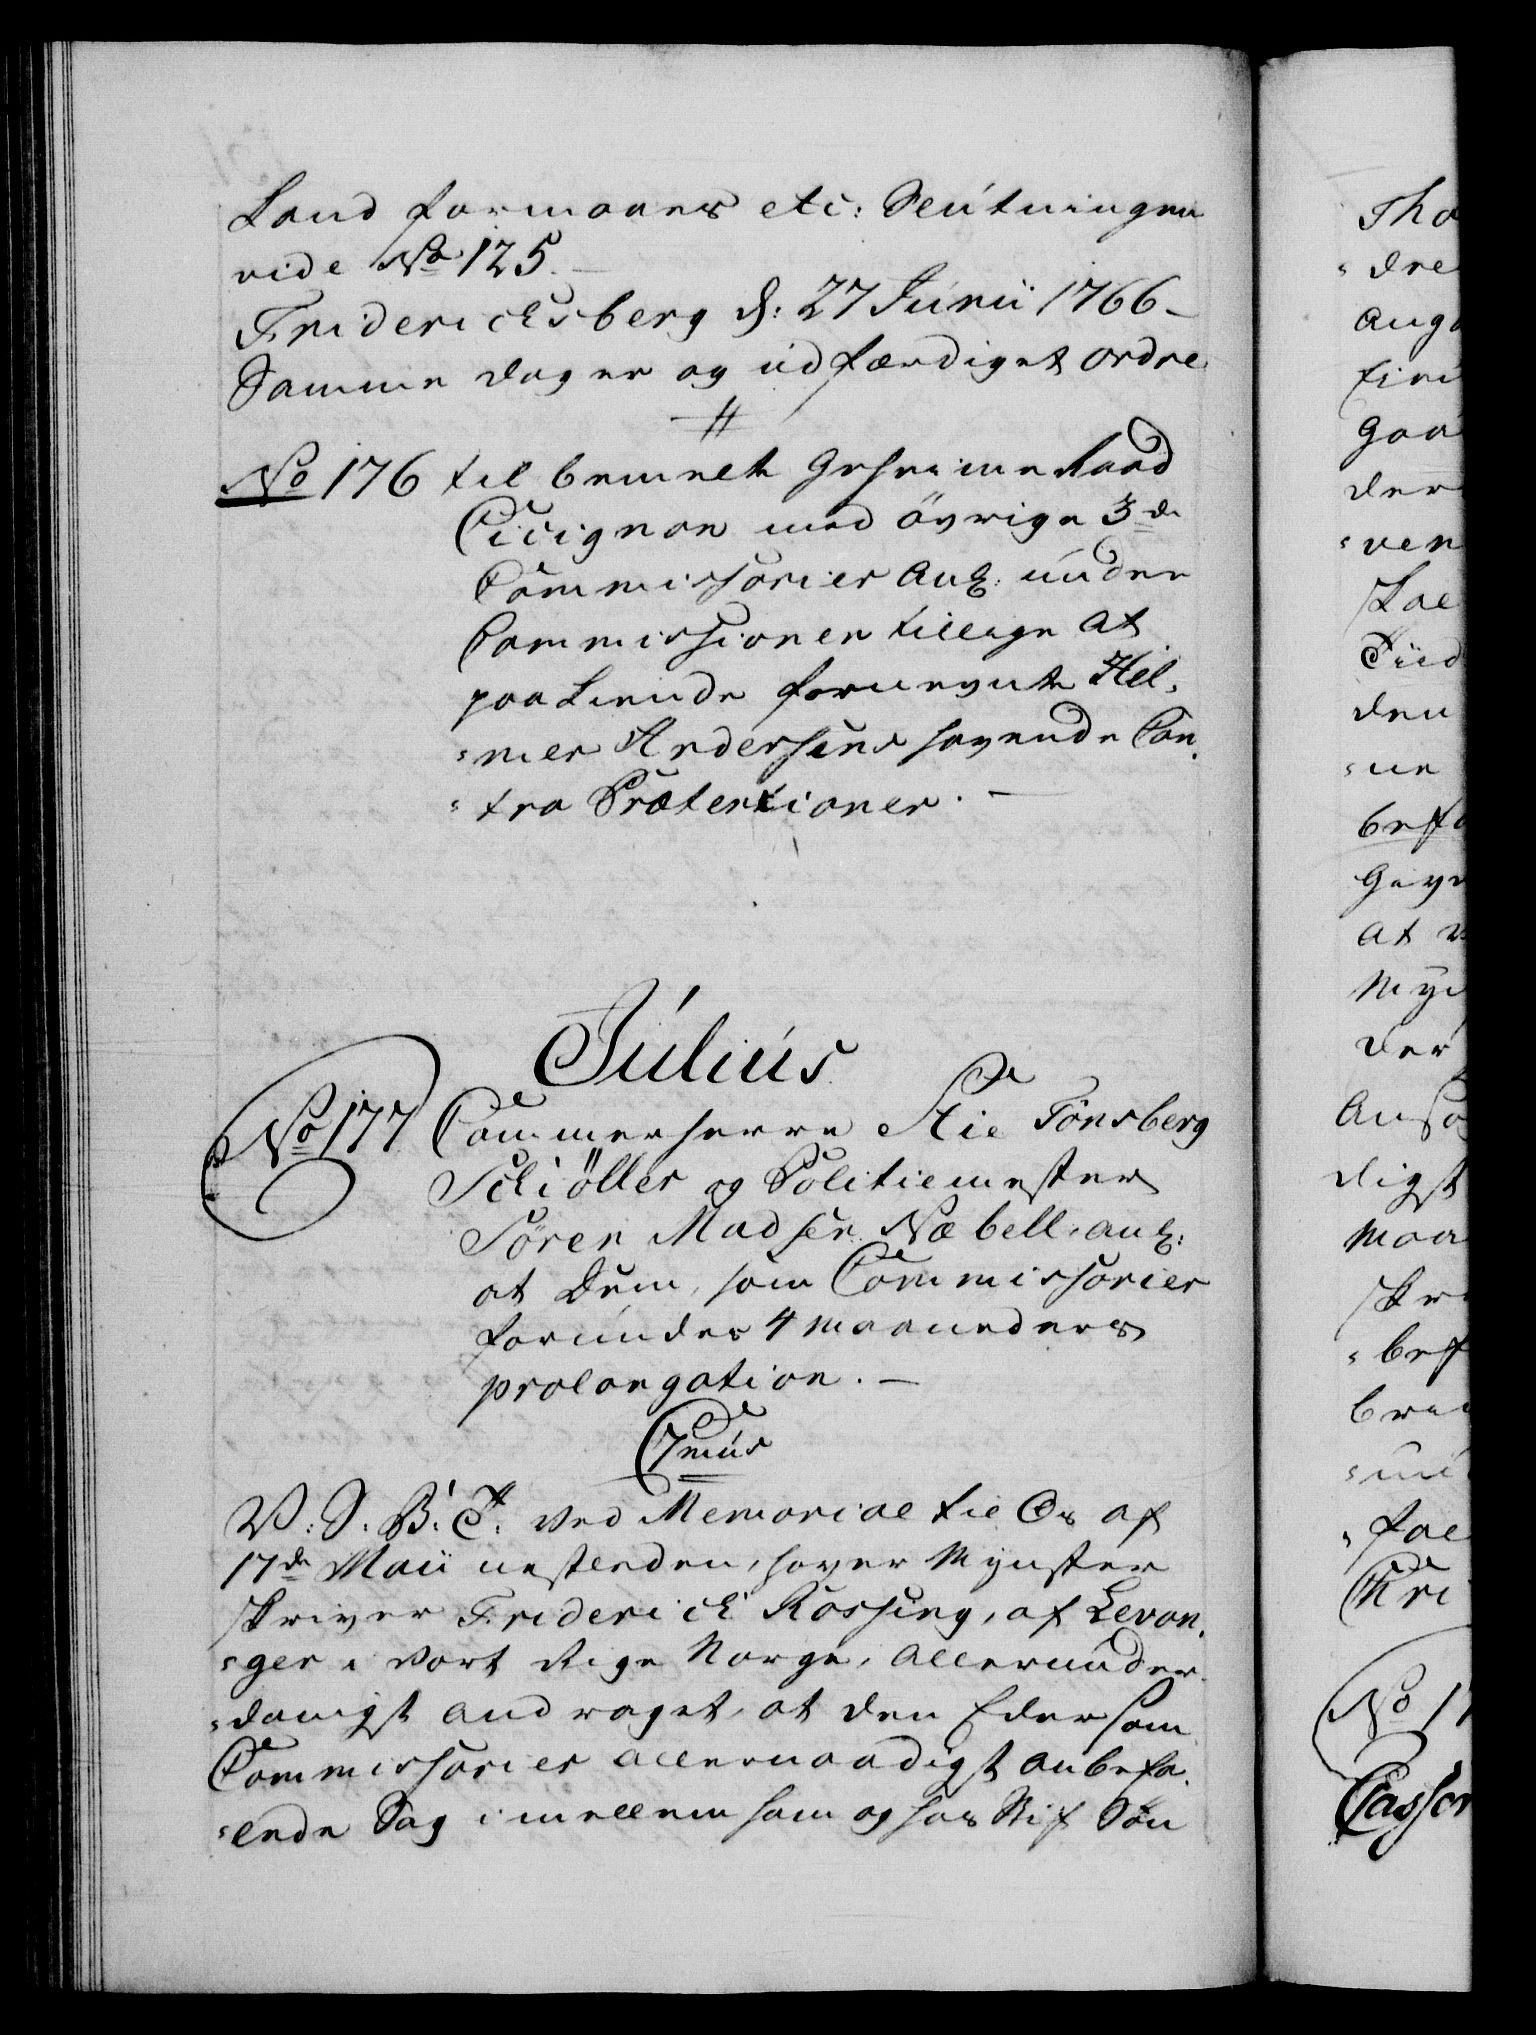 Land formaaes etc: Slutningen
vide No 125.
Friderichsberg d: 27 Junii 1766
Samme dag er og udfærdiget ordre
No 176 til bemelte Geheime Raad
Cicignon med øvrige 3de
Commissarier ang: under
Commissionen tillige at
paakiende forneunte Hel¬
¬mer Andersens havende Con¬
¬tra Prætentioner.
Julius
No 177 Cammerherre Stie Tönsberg
Schiöller og Politiemester
Sören Madsen Næbell, ang:
at Dem, som Commissarier
forundes 4 Maaneders
prolongation.
7mus
V: S. B: T. Ved Memorial til Os af
17de Maii nestleden, haver Mynster
skriver Friderich Rossing, af Levan¬
¬ger i vort Rige Norge, allerunder¬
¬danigst andraget, at den Eder som
Commissarier allernaadigst anbefa¬
¬lede Sag imellem ham og hos